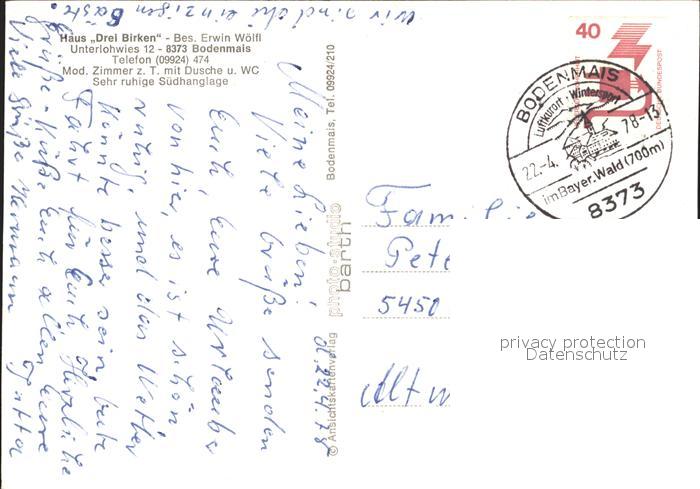 wir sind die einzigen Gäste.
Haus „Drei Birken" - Bes. Erwin Wölfl
Unterlohwies 12 - 8373 Bodenmais
Telefon (09924) 474
Mod. Zimmer z. T. mit Dusche u. WC
Sehr ruhige Südhanglage
d. 22.4.78
Meine Lieben,
Viele Grüße senden
Euch, Eure Urlauber
von hier, es ist schön
ruhig, und das Wetter
könnte besser sein, gute
Fahrt für Euch Herzliche
Grüße + Küße Euch allen Eure
Viele Grüße Hermann
© Ansichtskartenverlag
photo-studio
barth
Bodenmais, Tel. 09924/210
40
DEUTSCHE BUNDESPOST
BODENMAIS
Luftkurort · Wintersport
22.-4. 78-13
im Bayer. Wald (700m)
8373
Familie
Pete
5450
Altw
privacy protection
Datenschutz